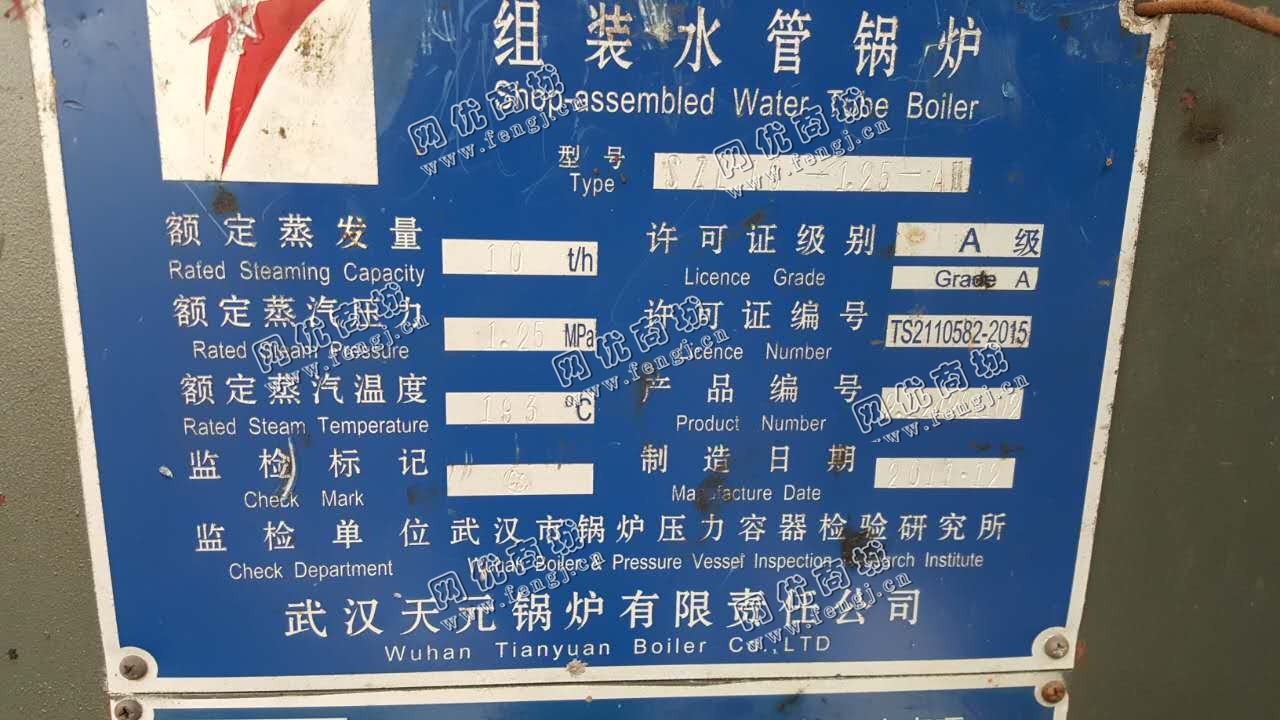 组装水管锅炉
Shop-assembled Water Tube Boiler
型号 Type SZL -1.25-AⅡ
额定蒸发量 10 t/h 许可证级别 A 级
Rated Steaming Capacity Licence Grade Grade A
额定蒸汽压力 1.25 MPa 许可证编号 TS2110582-2015
Rated Steam Pressure Licence Number
额定蒸汽温度 193 °C 产品编号
Rated Steam Temperature Product Number
监检标记 制造日期 2011.12
Check Mark Manufacture Date
监检单位 武汉市锅炉压力容器检验研究所
Check Department Wuhan Boiler & Pressure Vessel Inspection Research Institute
武汉天元锅炉有限责任公司
Wuhan Tianyuan Boiler Co.,LTD
网优商城
www.fengj.cn
网优商城
www.fengj.cn
网优商城
www.fengj.cn
网优商城
www.fengj.cn
网优商城
www.fengj.cn
网优商城
www.fengj.cn
网优商城
www.fengj.cn